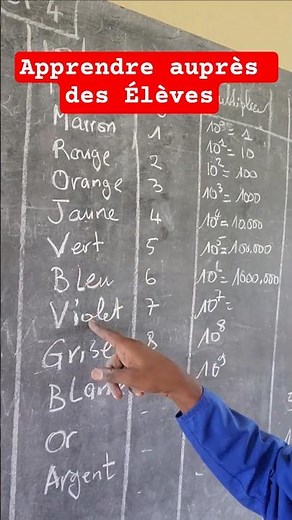 Apprendre auprès
des Élèves
Marron 1 10⁰ = 1
Rouge 2 10¹ = 10
Orange 3 10² = 100
Jaune 4 10³ = 1000
Vert 5 10⁴ = 10.000
Bleu 6 10⁵ = 100.000
Violet 7 10⁶ = 1000.000
Grise 8 10⁷ =
Blanc - 10⁸
Or - 10⁹
Argent -